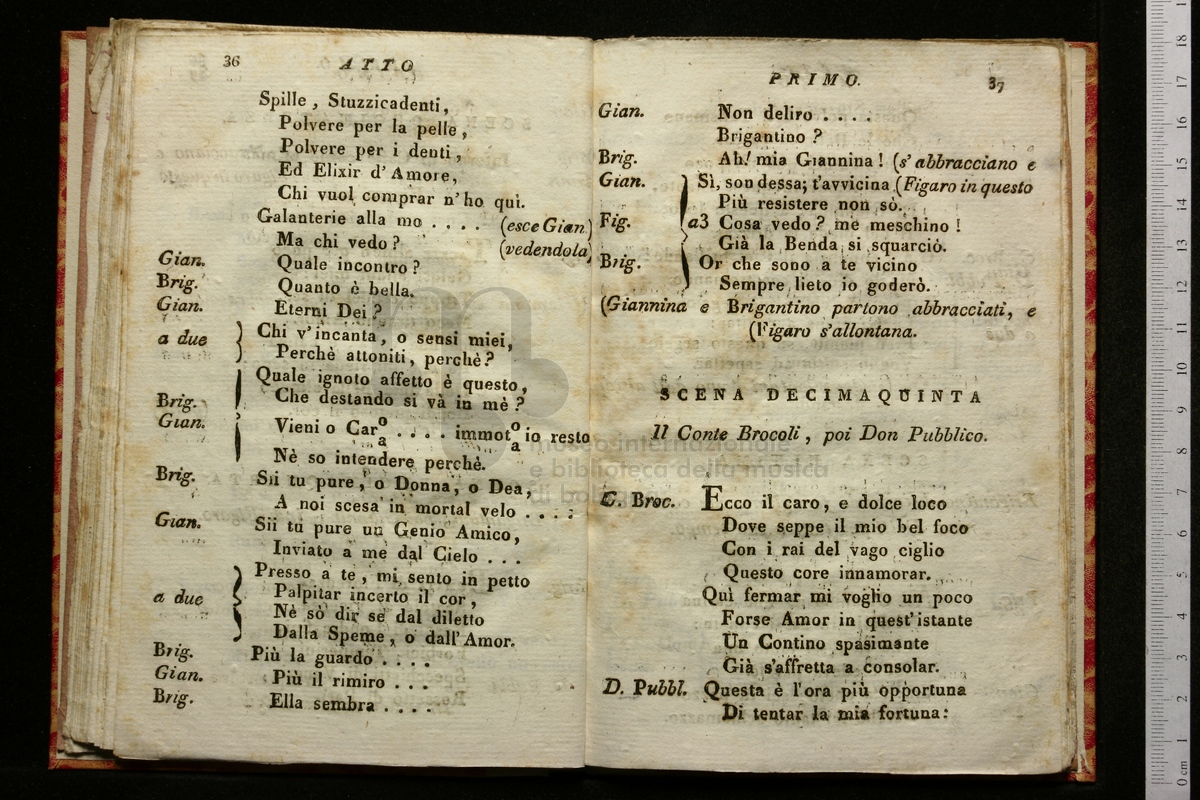 36 ATTO
Spille, Stuzzicadenti,
Polvere per la pelle,
Polvere per i denti,
Ed Elixir d'Amore,
Chi vuol comprar n'ho quì.
Galanterie alla mo .... (esce Gian.)
Ma chi vedo? (vedendola)
Gian. Quale incontro?
Brig. Quanto è bella.
Gian. Eterni Dei?
a due Chi v'incanta, o sensi miei,
Perchè attoniti, perchè?
Quale ignoto affetto è questo,
Brig. Che destando si và in mè?
Gian. Vieni o Car o/a .... immot o/a io resto
Nè so intendere perchè.
Brig. Sii tu pure, o Donna, o Dea,
A noi scesa in mortal velo ....
Gian. Sii tu pure un Genio Amico,
Inviato a me dal Cielo ...
Presso a te, mi sento in petto
a due Palpitar incerto il cor,
Nè sò dir se dal diletto
Dalla Speme, o dall'Amor.
Brig. Più la guardo ....
Gian. Più il rimiro ...
Brig. Ella sembra ....
PRIMO. 37
Gian. Non deliro ....
Brigantino?
Brig. Ah! mia Giannina! (s'abbracciano e
Gian. Sì, son dessa; t'avvicina (Figaro in questo
Più resistere non sò.
Fig. a3 Cosa vedo? me meschino!
Già la Benda si squarciò.
Brig. Or che sono a te vicino
Sempre lieto io goderò.
(Giannina e Brigantino partono abbracciati, e
(Figaro s'allontana.
SCENA DECIMAQUINTA
Il Conte Brocoli, poi Don Pubblico.
C. Broc. Ecco il caro, e dolce loco
Dove seppe il mio bel foco
Con i rai del vago ciglio
Questo core innamorar.
Quì fermar mi voglio un poco
Forse Amor in quest'istante
Un Contino spasimante
Già s'affretta a consolar.
D. Pubbl. Questa è l'ora più opportuna
Di tentar la mia fortuna:
museo internazionale
e biblioteca della musica
di bologna
0 cm 1 2 3 4 5 6 7 8 9 10 11 12 13 14 15 16 17 18